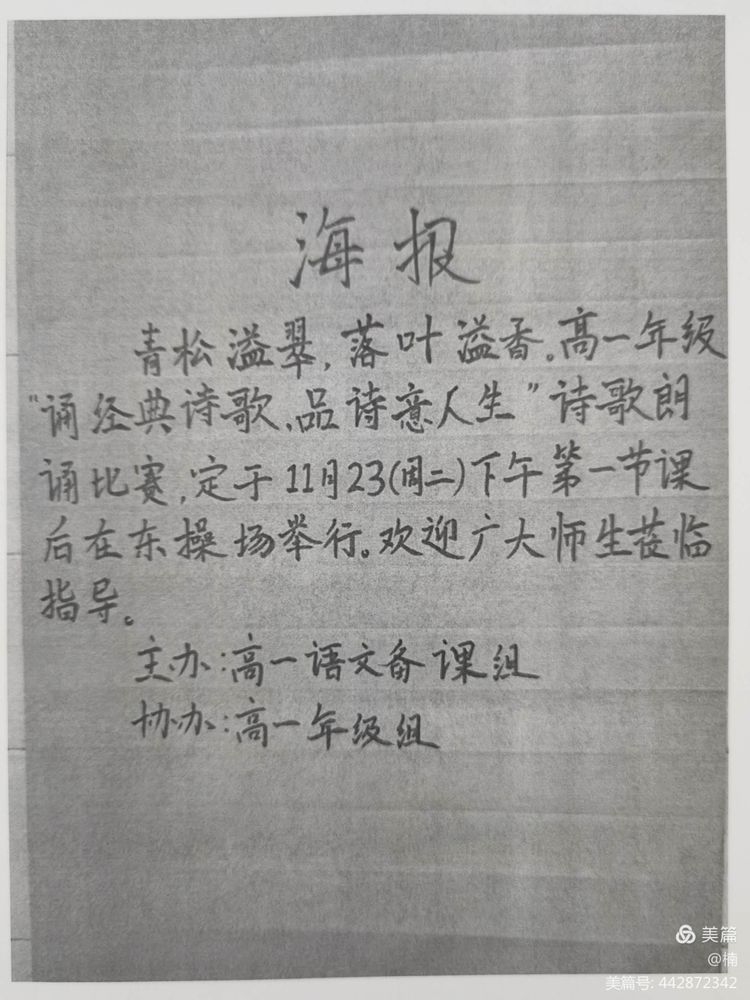 海报
青松溢翠，落叶溢香。高一年级
“诵经典诗歌，品诗意人生”诗歌朗
诵比赛，定于11月23(周二)下午第一节课
后在东操场举行。欢迎广大师生莅临
指导。
主办：高一语文备课组
协办：高一年级组
美篇
@楠
美篇号: 442872342